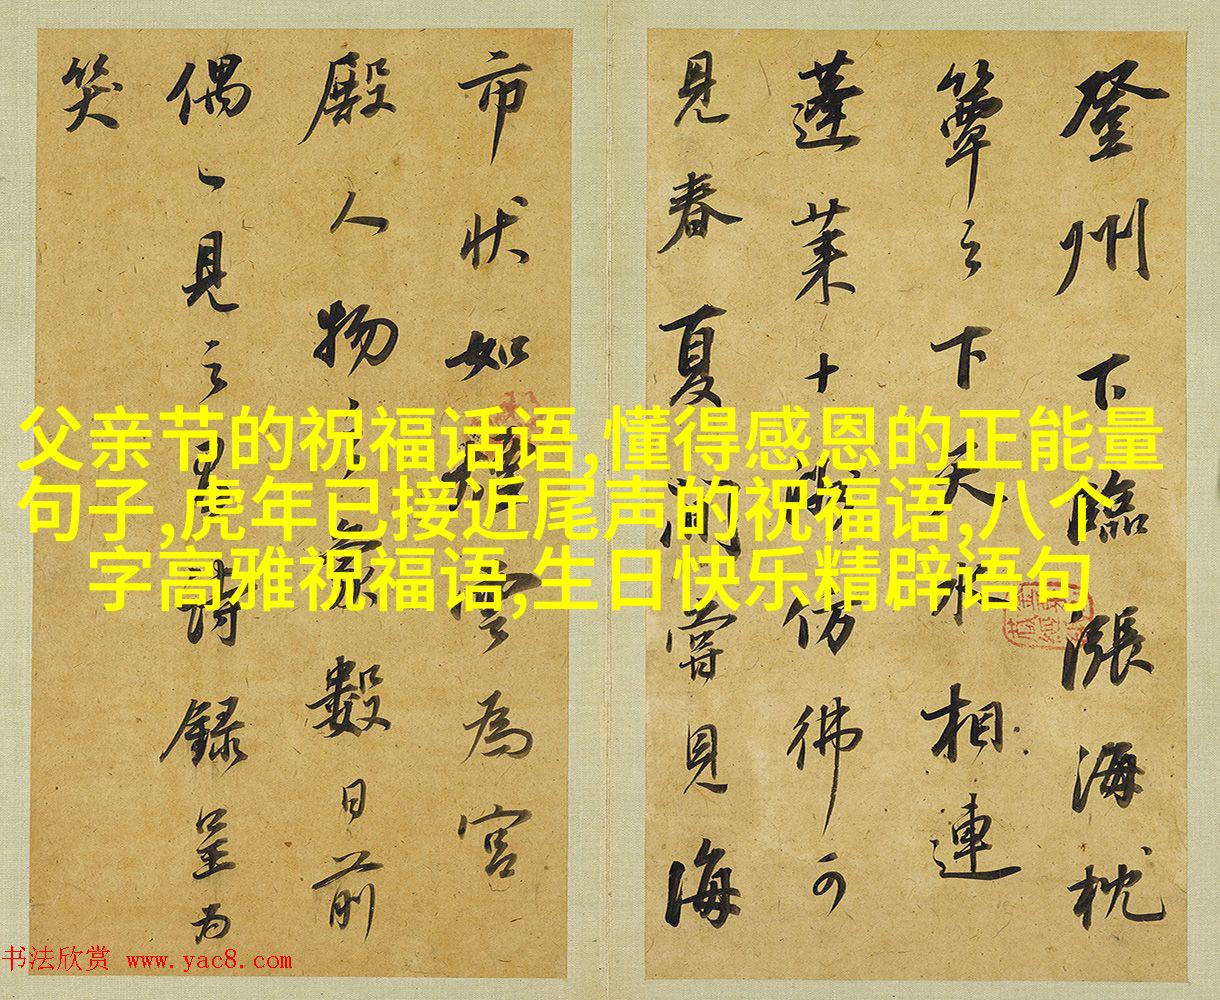 登州下臨漲海枕
簟之下天水相連
蓬莱十仿彿可
見春夏間嘗見海
市状如煙雲為宮
殿人物之衆數日前
偶〻見之詩録呈为
笑
父亲节的祝福话语,懂得感恩的正能量
句子,虎年已接近尾声的祝福语,八个
字高雅祝福语,生日快乐精辟语句
书法欣赏 www.yac8.com